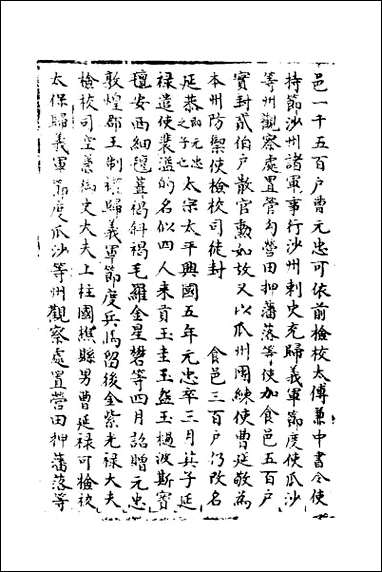 邑一千五百戶曹元忠可依前檢校太傅兼中書令使
持節沙州諸軍事行沙州刺史充歸義軍節度使瓜沙
等州觀察處置管勾營田押藩落等使加食邑五百戶
實封貳伯戶散官勳如故又以瓜州團練使曹延敬為
本州防禦使檢校司徒封 食邑三百戶仍改名
延恭即元忠之子也 太宗太平興國五年元忠卒三月其子延
祿遣使裴溢的名似四人来貢玉圭玉盌玉檛波斯寶
氊安西細氊茸褐斜褐毛羅金星礬等四月詔贈元忠
敦煌郡王制 歸義軍節度兵馬留後金紫光祿大夫
檢校司空兼御史大夫上柱國譙縣男曹延祿可檢校
太保歸義軍節度瓜沙等州觀察處置營田押藩落等